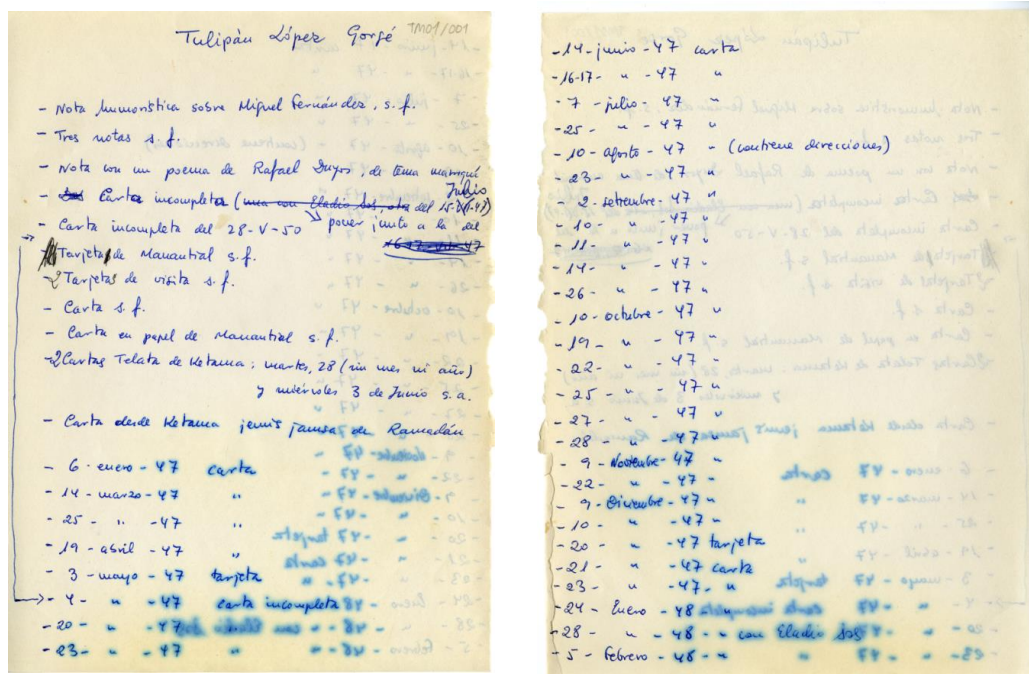 Tulipán López Gorgé TM01/001
- Nota humorística sobre Miguel Fernández, s.f.
- Tres notas s.f.
- Nota con un poema de Rafael Duyos, de tema marroquí
Julio
- Carta incompleta (una con Eladio Sos, otra del 15-V-47)
- Carta incompleta del 28-V-50 poner junto a la del
Tarjeta de Manantial s.f.
-2 Tarjetas de visita s.f.
- Carta s.f.
- Carta en papel de Manantial s.f.
-2 Cartas Telata de Ketama: martes, 28 (sin mes ni año)
y miércoles 3 de Junio s.a.
- Carta desde Ketama jemis jamsa en Ramadán
- 6 - enero - 47 carta
- 14 - marzo - 47 "
- 25 - " - 47 "
- 19 - abril - 47 "
- 3 - mayo - 47 tarjeta
- 4 - " - 47 carta incompleta
- 20 - " - 47
- 23 - " - 47 "
- 14 - junio - 47 carta
- 16-17 - " - 47 "
- 7 - julio - 47 "
- 25 - " - 47 "
- 10 - agosto - 47 " (contiene direcciones)
- 23 - " - 47 "
- 2 - setiembre - 47 "
- 10 - " - 47 "
- 11 - " - 47 "
- 14 - " - 47 "
- 26 - " - 47 "
- 10 - octubre - 47 "
- 19 - " - 47 "
- 22 - " - 47 "
- 25 - " - 47 "
- 27 - " - 47 "
- 28 " - 47 "
- 9 - Noviembre - 47 "
- 22 - " - 47 "
- 9 - Diciembre - 47 "
- 10 - " - 47 "
- 20 - " - 47 tarjeta
- 21 - " - 47 carta
- 23 - " - 47 - "
- 24 - Enero - 48
- 28 - " - 48 - " con Eladio Sos
- 5 - Febrero - 48 - "